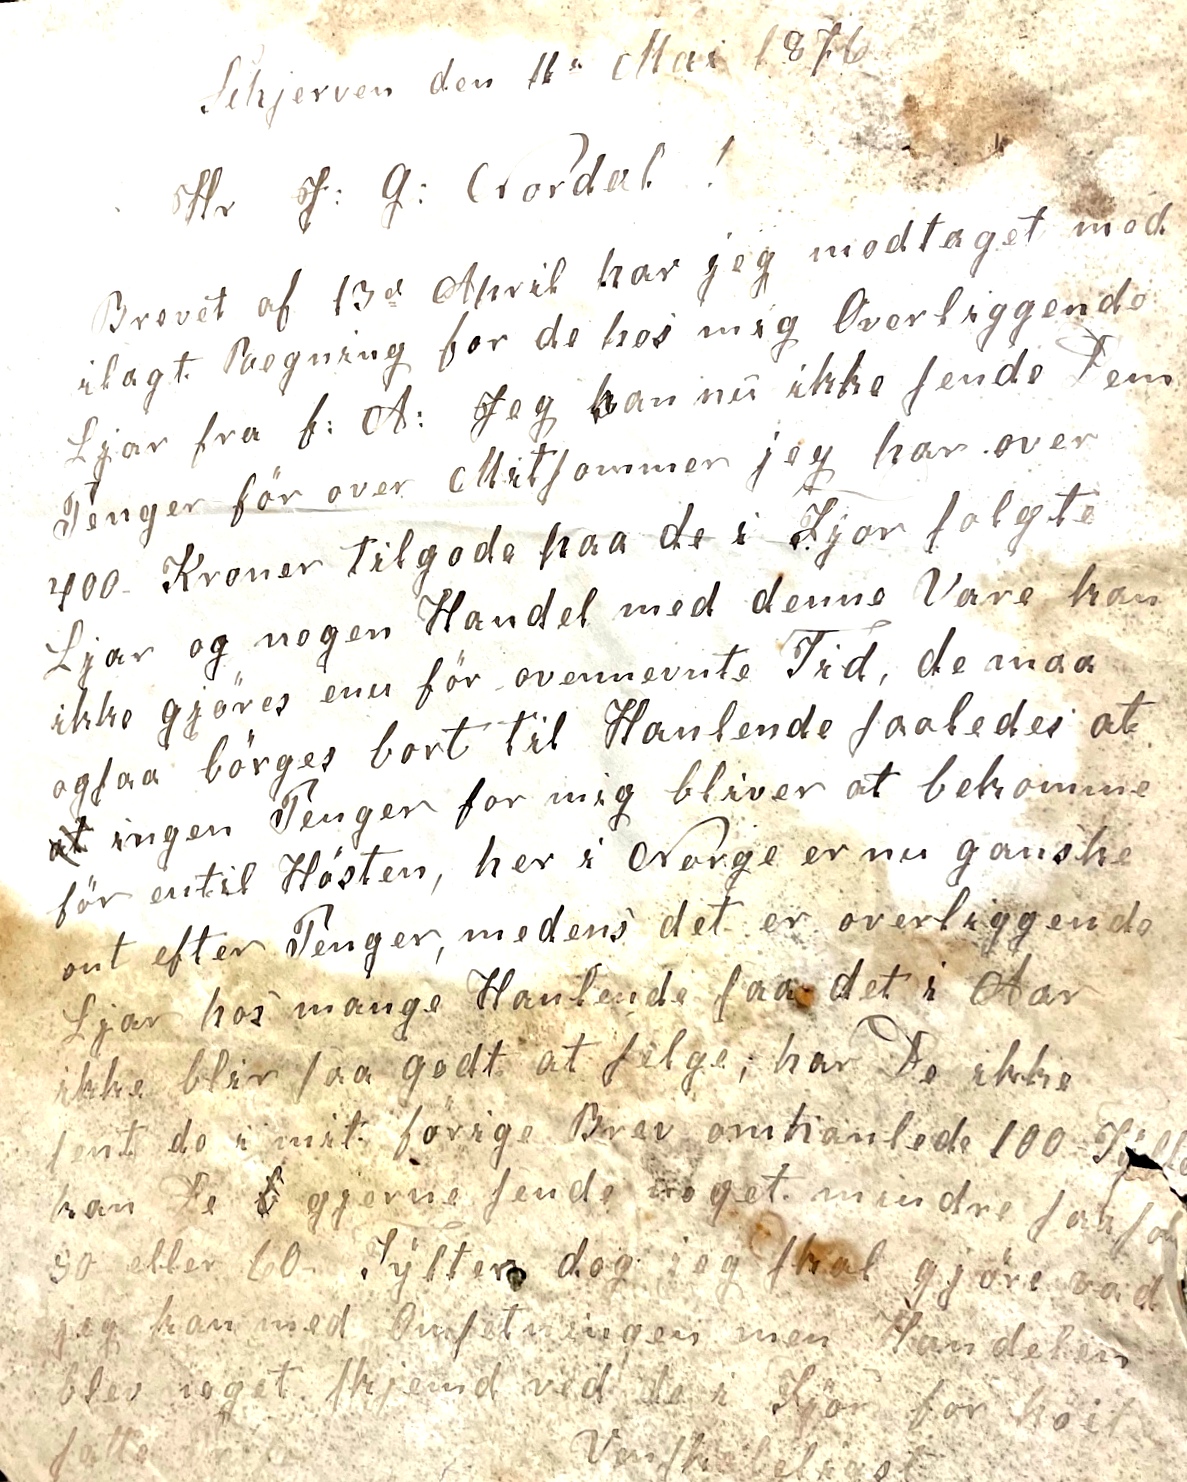 Schjerven den 11te Mai 1876
Hr J: G: Nordal !
Brevet af 13de April har jeg modtaget med
ilagt Regning for de hos mig Overliggende
Ljar fra f: A: Jeg kan nu ikke sende Dem
Penger för over Mitsommer jeg har over
400 Kroner tilgode paa de i Fjor solgte
Ljar og nogen Handel med denne Vare kan
ikke gjöres enu för ovennevnte Tid, de maa
ogsaa börges bort til Hanlende saaledes at
at ingen Penger for mig bliver at bekomme
för entil Hösten, her i Norge er nu ganske
ont efter Penger, medens det er overliggende
Ljar hos mange Hanlende saa det i Aar
ikke blir saa godt at selge; har De ikke
sent de i mit förige Brev omhanlede 100 Tylter
kan De gjerne sende noget mindre saasom
50 eller 60 Tylter dog jeg skal gjöre vad
jeg kan med Omsetningen men Handelen
blev noget skjemd ved de i Fjor for höit
satte
Venskabeligst